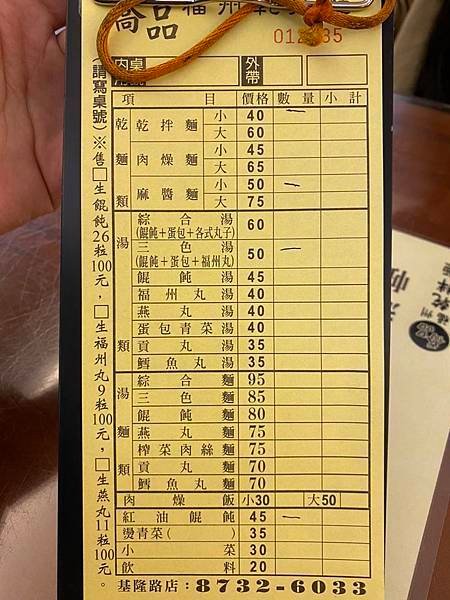 喬品 福州乾
內桌 外帶
項 目 價格 數量 小計
乾麵類
乾拌麵 小 40 一
大 60
肉燥麵 小 45
大 65
麻醬麵 小 50 一
大 75
湯類
綜合湯 60
(餛飩+蛋包+各式丸子)
三色湯 50 一
(餛飩+蛋包+福州丸)
餛飩湯 45
福州丸湯 40
燕丸湯 40
蛋包青菜湯 40
貢丸湯 35
鱈魚丸湯 35
湯麵類
綜合麵 95
三色麵 85
餛飩麵 80
燕丸麵 75
榨菜肉絲麵 75
貢丸麵 70
鱈魚丸麵 70
肉燥飯 小30 大50
紅油餛飩 45 一
燙青菜( ) 35
小菜 30
飲料 20
基隆路店:8732-6033
(請寫桌號)※售□生餛飩26粒100元,□生福州丸9粒100元,□生燕丸11粒100元。